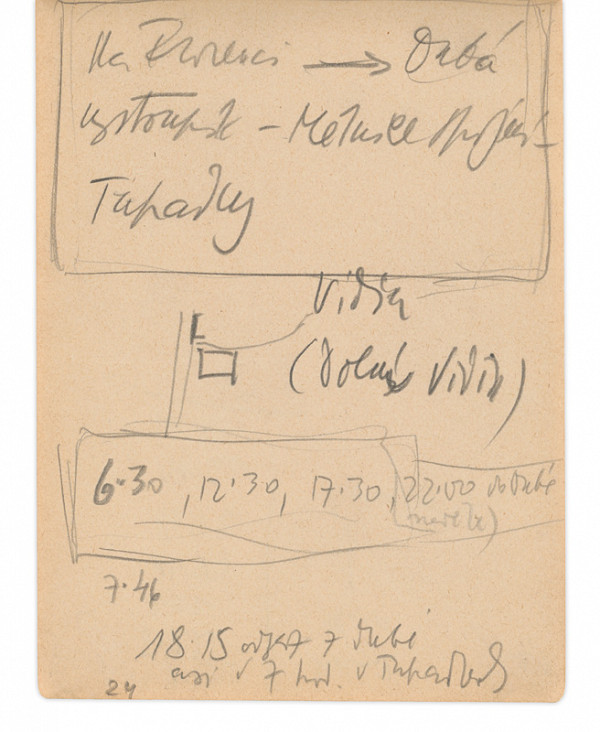 Na Florenci → Dubá
vystoupit –
Tupadly
Vidim
(Dolní Vidim)
6·30, 12·30, 17·30, 22·00 do Dubé
7·46
18·15 odjezd z Dubé
asi v 7 hod. v Tupadlech
24